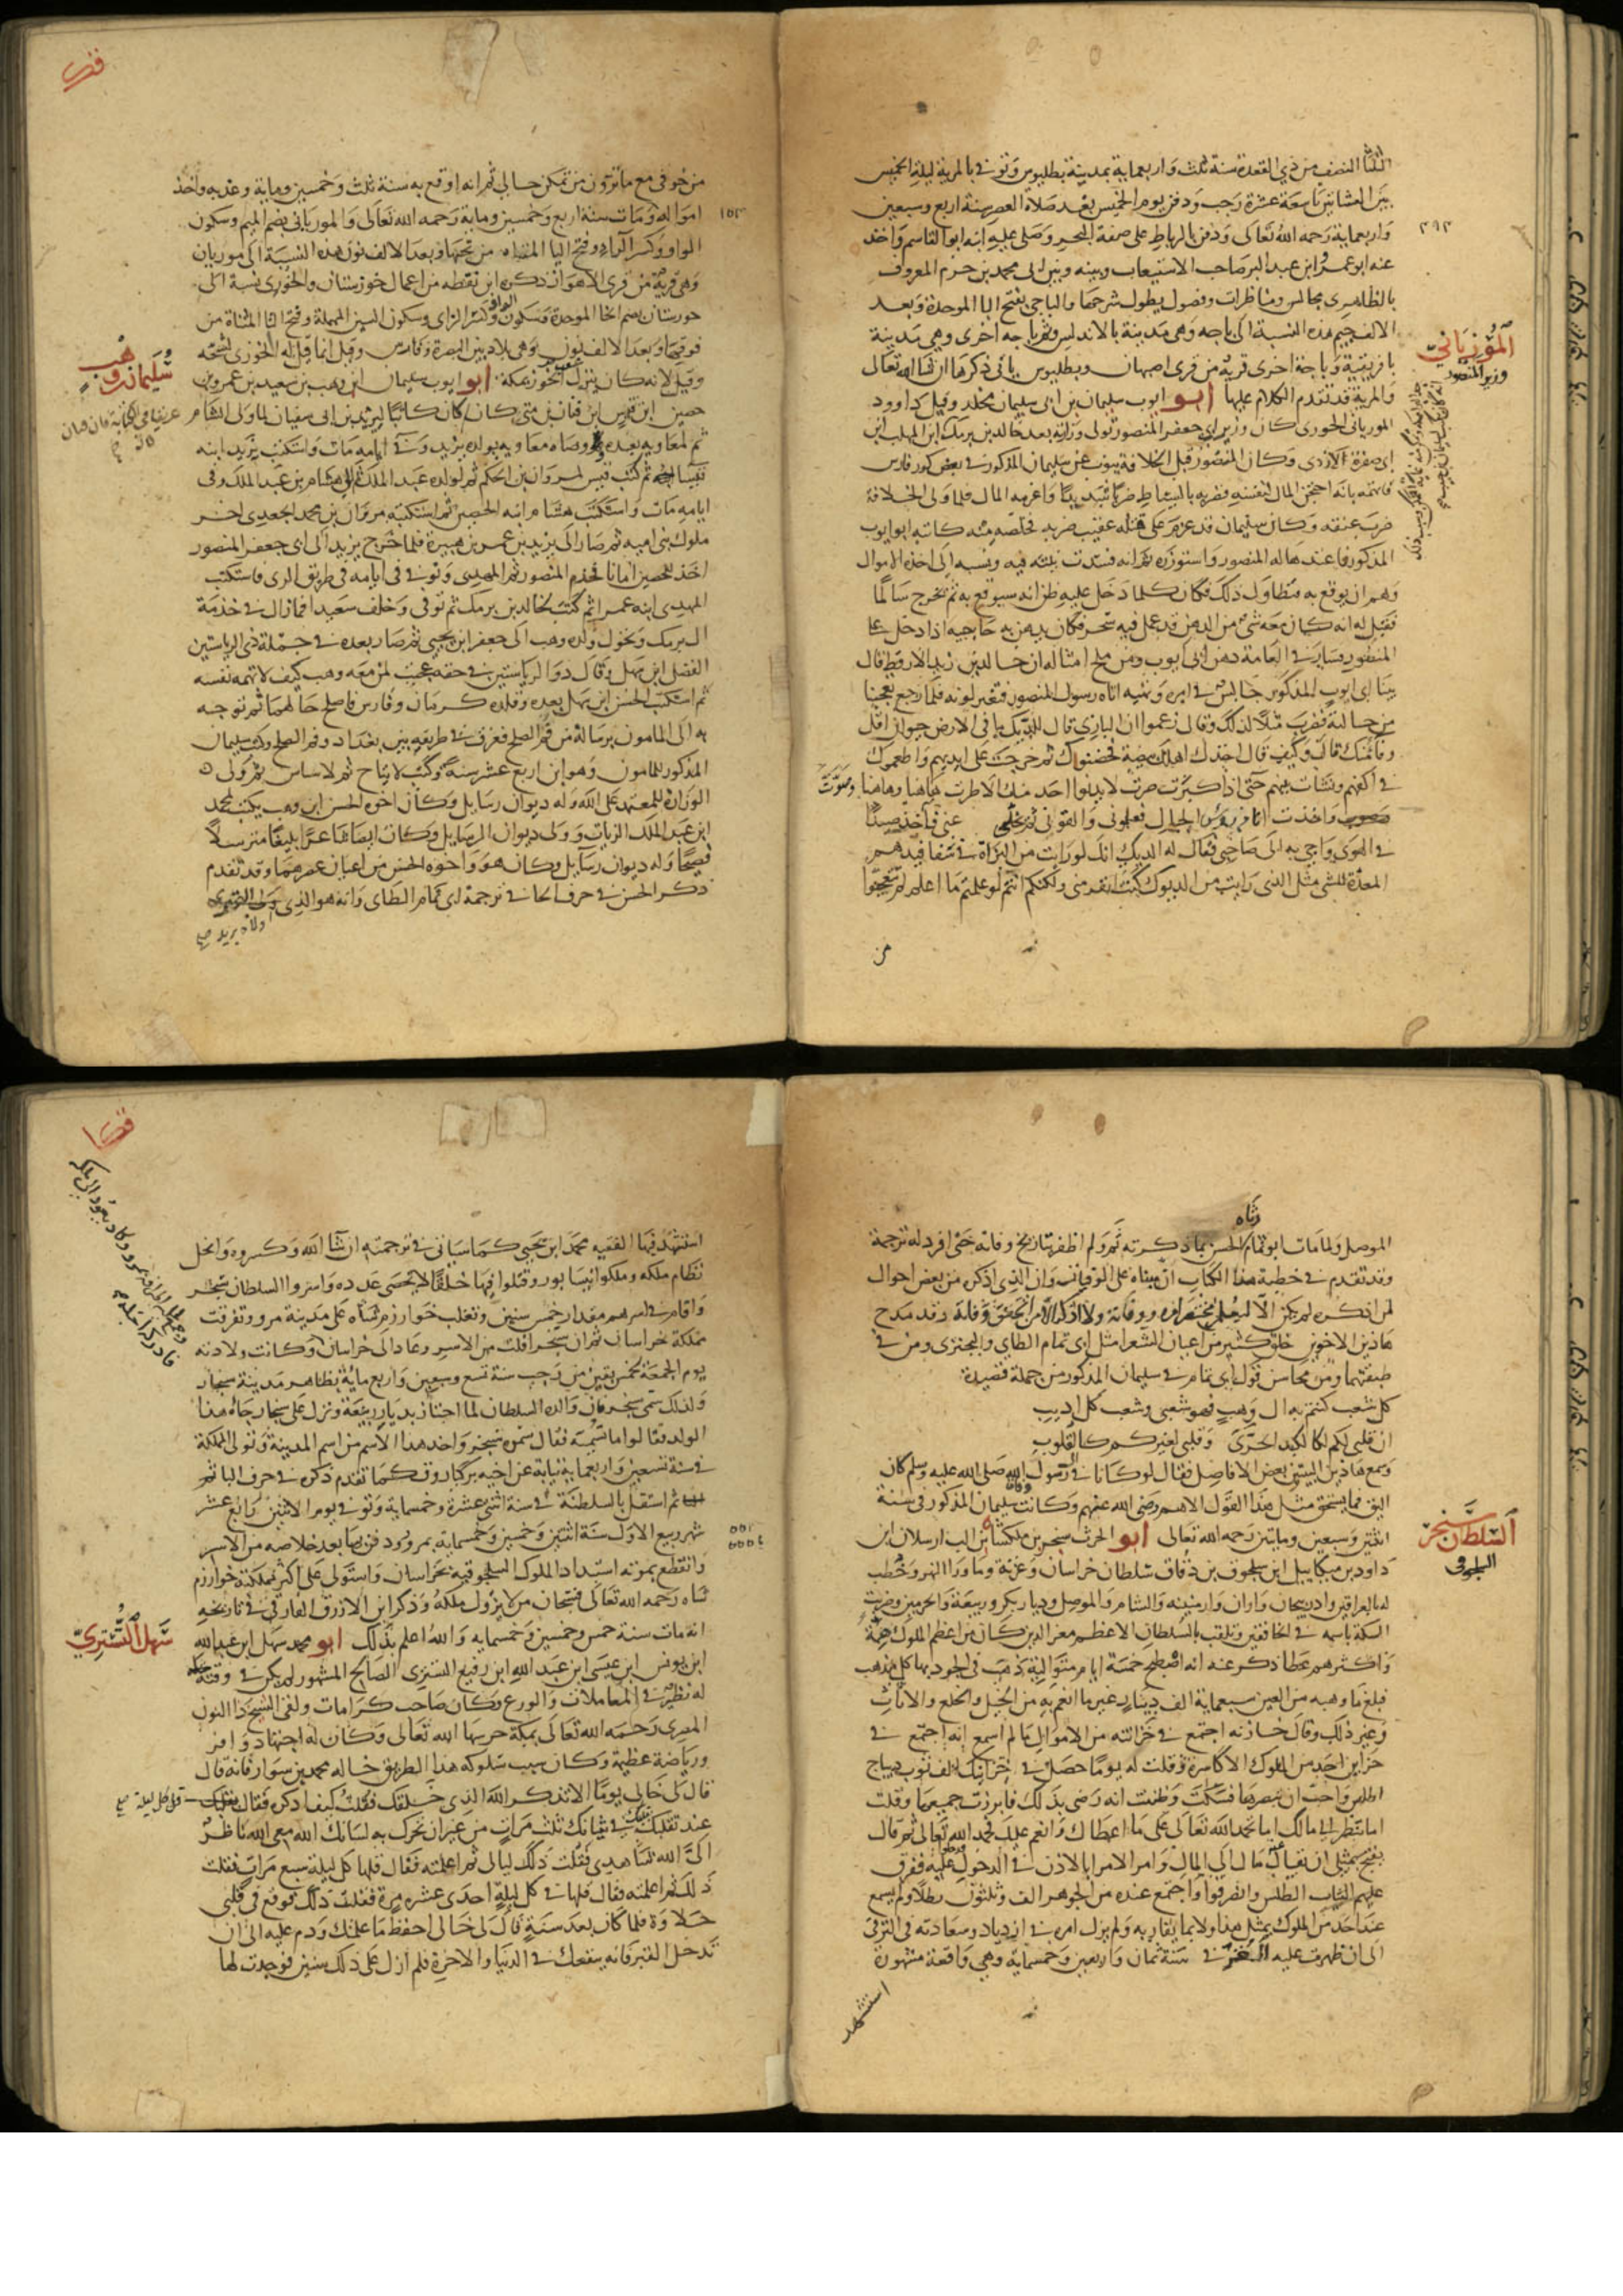 الثلثا النصف من ذي القعدة سنة ثلث واربعماية بمدينة بطليوس وتوفي بالمرية ليلة الخميس
بين العشاين تاسعة عشرة رجب ودفن يوم الخميس بعد صلاة العصر سنة اربع وسبعين
واربعماية رحمه الله تعالى ودفن بالرباط على ضفة البحر وصلى عليه ابنه ابو القاسم واخذ
عنه ابو عمر ابن عبد البر صاحب الاستيعاب وبينه وبين ابي محمد بن حزم المعروف
بالظاهري مجالس ومناظرات وفصول يطول شرحها والباجي بفتح البا الموحدة وبعد
الالف جيم هذه النسبة الى باجه وهي مدينة بالاندلس وثم باجه اخرى وهي مدينة
بافريقية وباجة اخرى قرية من قرى اصبهان وبطليوس ياتي ذكرها ان شا الله تعالى
والمرية قد تقدم الكلام عليها ابو ايوب سليمان بن ابي سليمان مخلد وقيل داوود
المورياني الخوزي كان وزير ابي جعفر المنصور تولى وزارته بعد خالد بن برمك
ابي صفرة الازدى وكان المنصور قبل الخلافة ينوب عن سليمان المذكور في بعض كور فارس
فاتهمه بانه احتجن المال لنفسه فضربه بالسياط ضربا شديدا واغرمه المال فلما ولى الخلافة
ضرب عنقه وكان سليمان قد عزم على هتكه عقيب ضربه فخلصه منه كاتبه ابو ايوب
المذكور فاعتدها له المنصور واستوزره ثم انه فسدت نيته فيه ونسبه الى اخذ الاموال
وهم ان يوقع به فتطاول ذلك فكان كلما دخل عليه ظن انه سيوقع به ثم يخرج سالما
فقيل له انه كان معه شي من الدهن قد عمل فيه سحر فكان يدهن به حاجبيه اذا دخل على
المنصور فسار في العامة دهن ابي ايوب ومن ملح امثاله ان خالد بن يزيد الارقط قال
بينا ابو ايوب المذكور جالس في امره ونهيه اتاه رسول المنصور فتغير لونه فلما رجع تعجبنا
من حالته فضرب مثلا لذلك وقال زعموا ان البازي قال للديك ما في الارض حيوان اقل
وفا منك قال وكيف قال اخذك اهلك بيضة فحضنوك ثم خرجت على ايديهم واطعموك
في اكفهم ونشات بينهم حتى اذا كبرت صرت لا يدنوا احد منك الا طرت هاهنا وهاهنا وصوت
واخذت انا من رؤس الجبال فعلموني والفوني ثم يخلى عني فاخذ صيدا
في الهوى واجي به الى صاحبي فقال له الديك انك لو رايت من البزاة في سفافيدهم
المعدة للشي مثل الذي رايت من الديوك كنت انفر مني ولكنكم انتم لو علمتم ما اعلم لم تتعجبوا
من
المورياني
وزير المنصور
من خوفي مع ما ترون من تمكن حالي ثم انه اوقع به سنة ثلث وخمسين وماية وعذبه واخذ
امواله ومات سنة اربع وخمسين وماية رحمه الله تعالى والمورياني بضم الميم وسكون
الواو وكسر الرا وفتح اليا المثناه من تحتها وبعد الالف نون هذه النسبة الى موريان
وهي قرية من قرى الاهواز ذكره ابن نقطه من اعمال خوزستان والخوزي نسبة الى
خوزستان بضم الخا الموحدة وسكون الواو وكسر الزاي وسكون السين المهملة وفتح التا المثناة من
فوقها وبعد الالف نون وهي بلاد بين البصرة وفارس وقيل انما قيل له الخوزي لشحه
وقيل لانه كان ينزل شعب الخوز بمكة ابو ايوب سليمان ابن وهب بن سعيد بن عمرو بن
حصين ابن قيس ابن قنان بن متى كان كان كاتبا ليزيد بن ابي سفيان لما ولى الشام
ثم لمعاويه بعده ووصاه معاويه بولده يزيد وفي ايامه مات واستكتب يزيد ابنه
قيسا ثم كتب قيس لمروان بن الحكم ثم لولده عبد الملك ثم لهشام بن عبد الملك وفى
ايامه مات واستكتب هشام ابنه الحصين ثم استكتبه مروان بن محمد الجعدي اخر
ملوك بني اميه ثم صار الى يزيد بن عمر بن هبيرة فلما خرج يزيد الى ابي جعفر المنصور
اخذ للحصين امانا فخدم المنصور ثم المهدي وتوفي في ايامه في طريق الرى فاستكتب
المهدي ابنه عمرا ثم كتب لخالد بن برمك ثم توفى وخلف سعيدا فما زال في خدمة
ال برمك وتحول ولده وهب الى جعفر ابن يحيى ثم صار بعده في جملة ذي الرياستين
الفضل ابن سهل وقال ذو الرياستين في حقه عجبت لمن معه وهب كيف لا تهمه نفسه
ثم استكتبه الحسن ابن سهل بعده وقلده كرمان وفارس فاصلح حالهما ثم توجه
به الى المامون برسالة من فم الصلح فغرق في طريقه بين بغداد وفم الصلح وكتب سليمان
المذكور للمامون وهو ابن اربع عشر سنة وكتب لايتاخ ثم لاشناس ثم ولى
الوزارة للمعتمد على الله وله ديوان رسايل وكان اخوه الحسن ابن وهب يكتب لمحمد
ابن عبد الملك الزيات وولى ديوان الرسايل وكان ايضا شاعرا بليغا مترسلا
فصيحا وله ديوان رسايل وكان هو واخوه الحسن من اعيان عصرهما وقد تقدم
ذكر الحسن في حرف الحا في ترجمة ابي تمام الطاى وانه هو الذي
ولاه بريد
سليمان بن وهب
١٥٣
٣٩٣
رثاه
الموصل ولما مات ابو تمام الحسن بما ذكرته ثم ولم اظفر بتاريخ وفاته حتى افرد له ترجمة
وقد تقدم في خطبة هذا الكتاب ان مبناه على الوفيات وان الذي اذكره من بعض احوال
لم اذكره لم يكن الا ليعلم
هاذين الاخوين خلق كثير من اعيان الشعرا مثل ابي تمام الطاي والبحتري ومن في
طبقتهما ومن محاسن قول ابي تمام في سليمان المذكور من جملة قصيدة
كل شعب كنتم به ال وهب فهو شعبي وشعب كل اديب
ان قلبي لكم لكالكبد الحرى وقلبي لغيركم كالقلوب
وسمع هاذين البيتين بعض الافاضل فقال لو كانا في آل رسول الله صلى الله عليه وسلم كان
اليق فما يستحق مثل هذا القول الا هم رضي الله عنهم وكانت وفاة سليمان المذكور في سنة
اثنتين وسبعين ومايتين رحمه الله تعالى ابو الحرث سنجر بن ملكشاه بن الب ارسلان ابن
داود بن ميكاييل ابن سلجوق بن دقاق سلطان خراسان وغزنة وما ورا النهر وخطب
له بالعراقين واذربيجان واران وارمينيه والشام والموصل وديار بكر وربيعة والحرمين وضربت
السكة باسمه في الخافقين وتلقب بالسلطان الاعظم معز الدين كان من اعظم الملوك همة
واكثرهم عطا ذكر عنه انه اصطبح خمسة ايام متوالية ذهب في الجود بها كل مذهب
فبلغ ما وهبه من العين سبعماية الف دينار غير ما انعم به من الخيل والخلع والاثاث
وغير ذلك وقال خازنه اجتمع في خزانته من الاموال ما لم اسمع انه اجتمع في
خزاين احد من الملوك الاكاسرة وقلت له يوما حصل في خزانتك الف ثوب ديباج
اطلس واحب ان تبصرها فسكت وظننت انه رضي بذلك فابرزت جميعها وقلت
اما تنظر الى مالك اما تحمد الله تعالى على ما اعطاك وانعم عليك فحمد الله تعالى ثم قال
يقبح بمثلي ان يقال مال الى المال وامر الامرا بالاذن في الدخول عليه ففرق
عليهم الثياب الطلس وانفرقوا واجتمع عنده من الجوهر الف وثلثون رطلا ولم يسمع
عند احد من الملوك بمثل هذا ولا بما يقاربه ولم يزل امره في ازدياد وسعادته في الترقى
الى ان ظهرت عليه الغز في سنة ثمان واربعين وخمسماية وهي واقعة مشهورة
استشهد
السلطان سنجر
السلجوقى
استشهد فيها الفقيه محمد ابن يحيى كما سياتي في ترجمته ان شا الله وكسروه وانحل
نظام ملكه وملكوا نيسابور وقتلوا فيها خلقا لا يحصى عدده واسروا السلطان سنجر
واقام في اسرهم مقدار خمس سنين وتغلب خوارزم شاه على مدينة مرو وتفرقت
مملكة خراسان ثم ان سنجر افلت من الاسر وعاد الى خراسان وكانت ولادته
يوم الجمعة لخمس بقين من رجب سنة تسع وسبعين واربع ماية بظاهر مدينة سنجار
ولذلك سمى سنجر فان والده السلطان لما اجتاز بديار ربيعة ونزل على سنجار جاه هذا
الولد فقالوا ما تسميه فقال سموه سنجر واخذ هذا الاسم من اسم المدينة وتولى المملكة
في سنة تسعين واربعماية نيابة عن اخيه بركياروق كما تقدم ذكره في حرف البا ثم
ثم استقل بالسلطنة في سنة اثنتى عشرة وخمسماية وتوفي يوم الاثنين رابع عشر
شهر ربيع الاول سنة اثنتين وخمسين وخمسماية بمرو ودفن بها بعد خلاصه من الاسر
وانقطع بموته استبداد الملوك السلجوقيه بخراسان واستولى على اكثر مملكته خوارزم
شاه رحمه الله تعالى فسبحان من لا يزول ملكه وذكر ابن الازرق الفارقي في تاريخه
انه مات سنة خمس وخمسين وخمسمايه والله اعلم بذلك ابو محمد سهل ابن عبد الله
ابن يونس ابن عيسى ابن عبد الله ابن رفيع التستري الصالح المشهور لم يكن في وقته
له نظير في المعاملات والورع وكان صاحب كرامات ولقى الشيخ ذا النون
المصري رحمه الله تعالى بمكة حرسها الله تعالى وكان له اجتهاد وافر
ورياضة عظيمة وكان سبب سلوكه هذا الطريق خاله محمد بن سوار فانه قال
قال لي خالي يوما الا تذكر الله الذي خلقك فقلت كيف اذكره فقال
عند تقلبك في ثيابك ثلث مرات من غير ان تحرك به لسانك الله معي الله ناظر
الي الله شاهدي فقلت ذلك ليال ثم اعلمته فقال قلها كل ليلة سبع مرات فقلت
ذلك ثم اعلمته فقال قلها في كل ليلة احدى عشره مرة فقلت ذلك فوقع في قلبي
حلاوة فلما كان بعد سنة قال لي خالي احفظ ما علمتك ودم عليه الى ان
تدخل القبر فانه ينفعك في الدنيا والاخرة فلم ازل على ذلك سنين فوجدت لها
سهل التستري